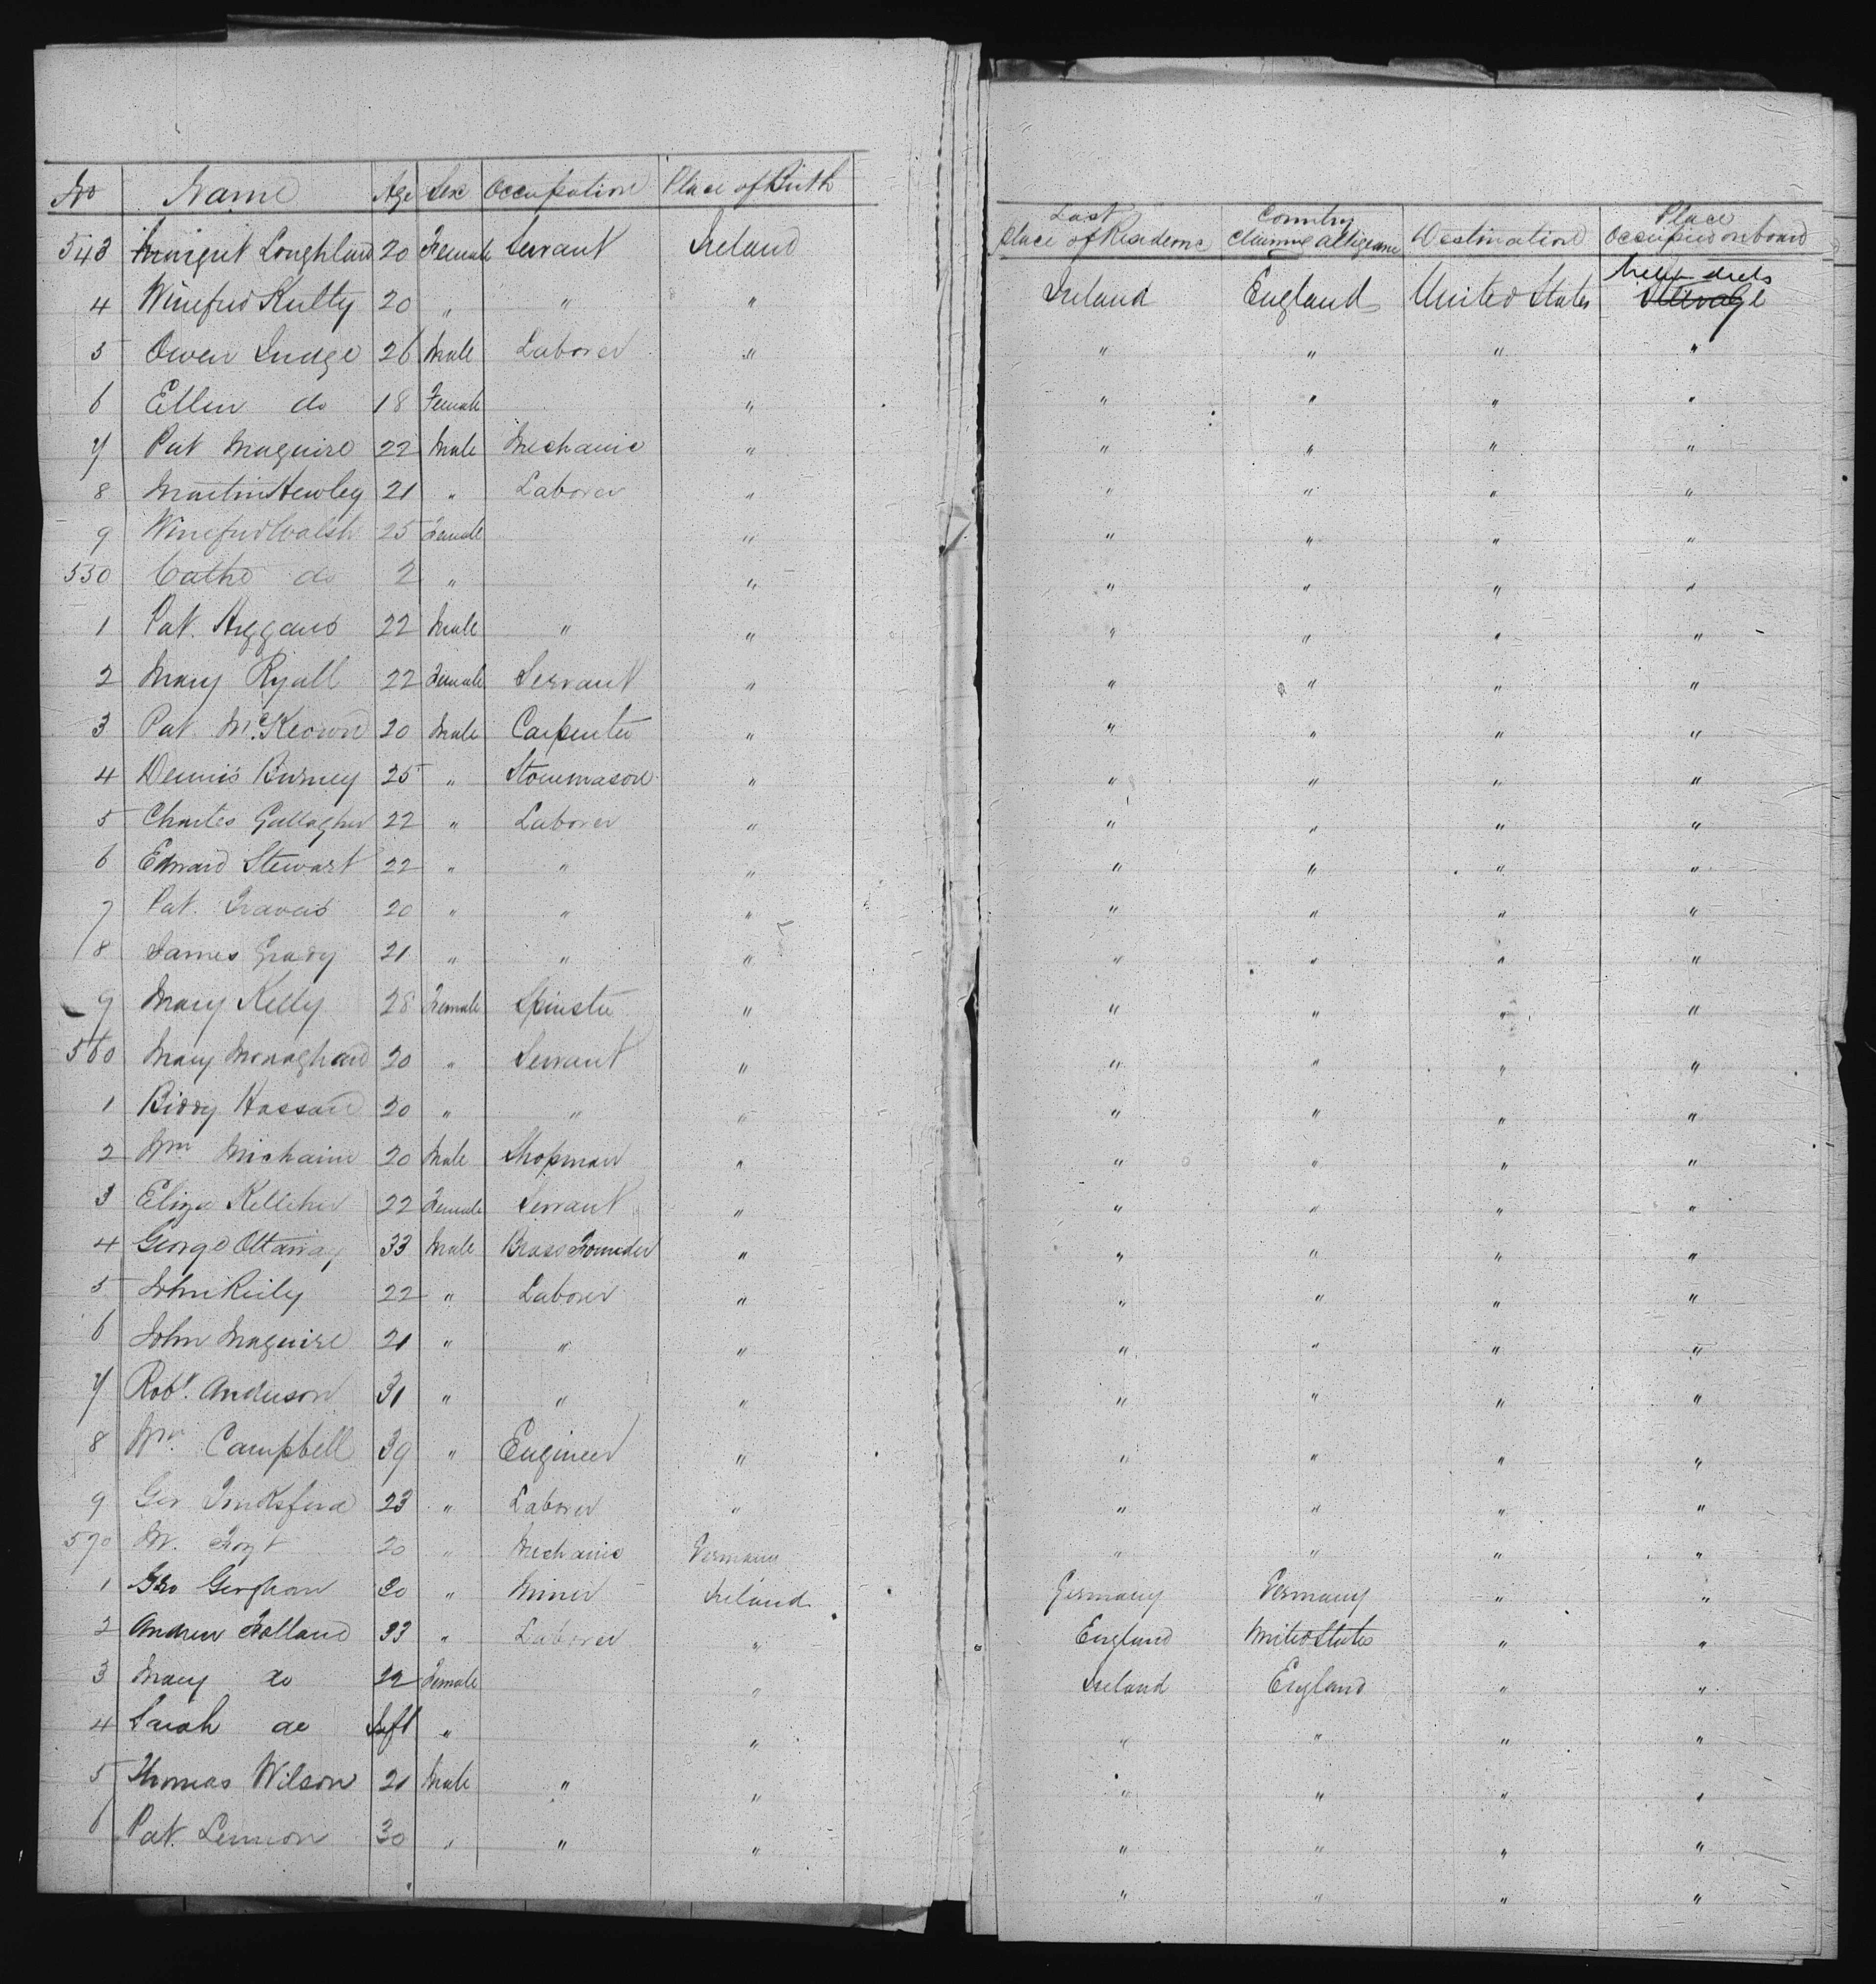 No Name Age Sex Occupation Place of Birth
543 Margret Loughland 20 Female Servant Ireland
4 Winefud Kulty 20 " " "
5 Owen Judge 26 Male Laborer "
6 Ellen do 18 Female "
7 Pat Maguire 22 Male Mechanic "
8 Martin Hewley 21 " Laborer "
9 Winefud Walsh 25 Female "
550 Cathe do 2 " "
1 Pat. Higgans 22 Male " "
2 Mary Ryall 22 Female Servant "
3 Pat McKeown 20 Male Carpenter "
4 Dennis Burney 25 " Stonemason "
5 Charles Gallagher 22 " Laborer "
6 Edward Stewart 22 " " "
7 Pat. Travers 20 " " "
8 James Grady 21 " " "
9 Mary Kelly 28 Female Spinster "
560 Mary Monaghand 20 " Servant "
1 Biddy Hassan 20 " " "
2 Wm 20 Male Shopman "
3 Eliza Kelleher 22 Female Servant "
4 George Ottaway 33 Male Brass Founder "
5 John Reily 22 " Laborer "
6 John Maguire 21 " " "
7 Robt. Anderson 31 " " "
8 Wm Campbell 39 " Engineer "
9 Geo 23 " Laborer "
570 20 " Mechanic Germany
1 Geo 30 " Miner Ireland
2 Andrew Holland 33 " Laborer "
3 Mary do 22 Female "
4 Sarah do Inft " "
5 Thomas Wilson 21 Male " "
6 Pat. Lennon 30 " " "
Last Place of Residence Country Claiming Allegiance Destination Place Occupied on board
Ireland England United States Steerage
" " " "
" " " "
" " " "
" " " "
" " " "
" " " "
" " " "
" " " "
" " " "
" " " "
" " " "
" " " "
" " " "
" " " "
" " " "
" " " "
" " " "
" " " "
" " " "
" " " "
" " " "
" " " "
" " " "
" " " "
" " " "
" " " "
Germany Germany " "
England United States " "
Ireland England " "
" " " "
" " " "
" " " "
" " " "